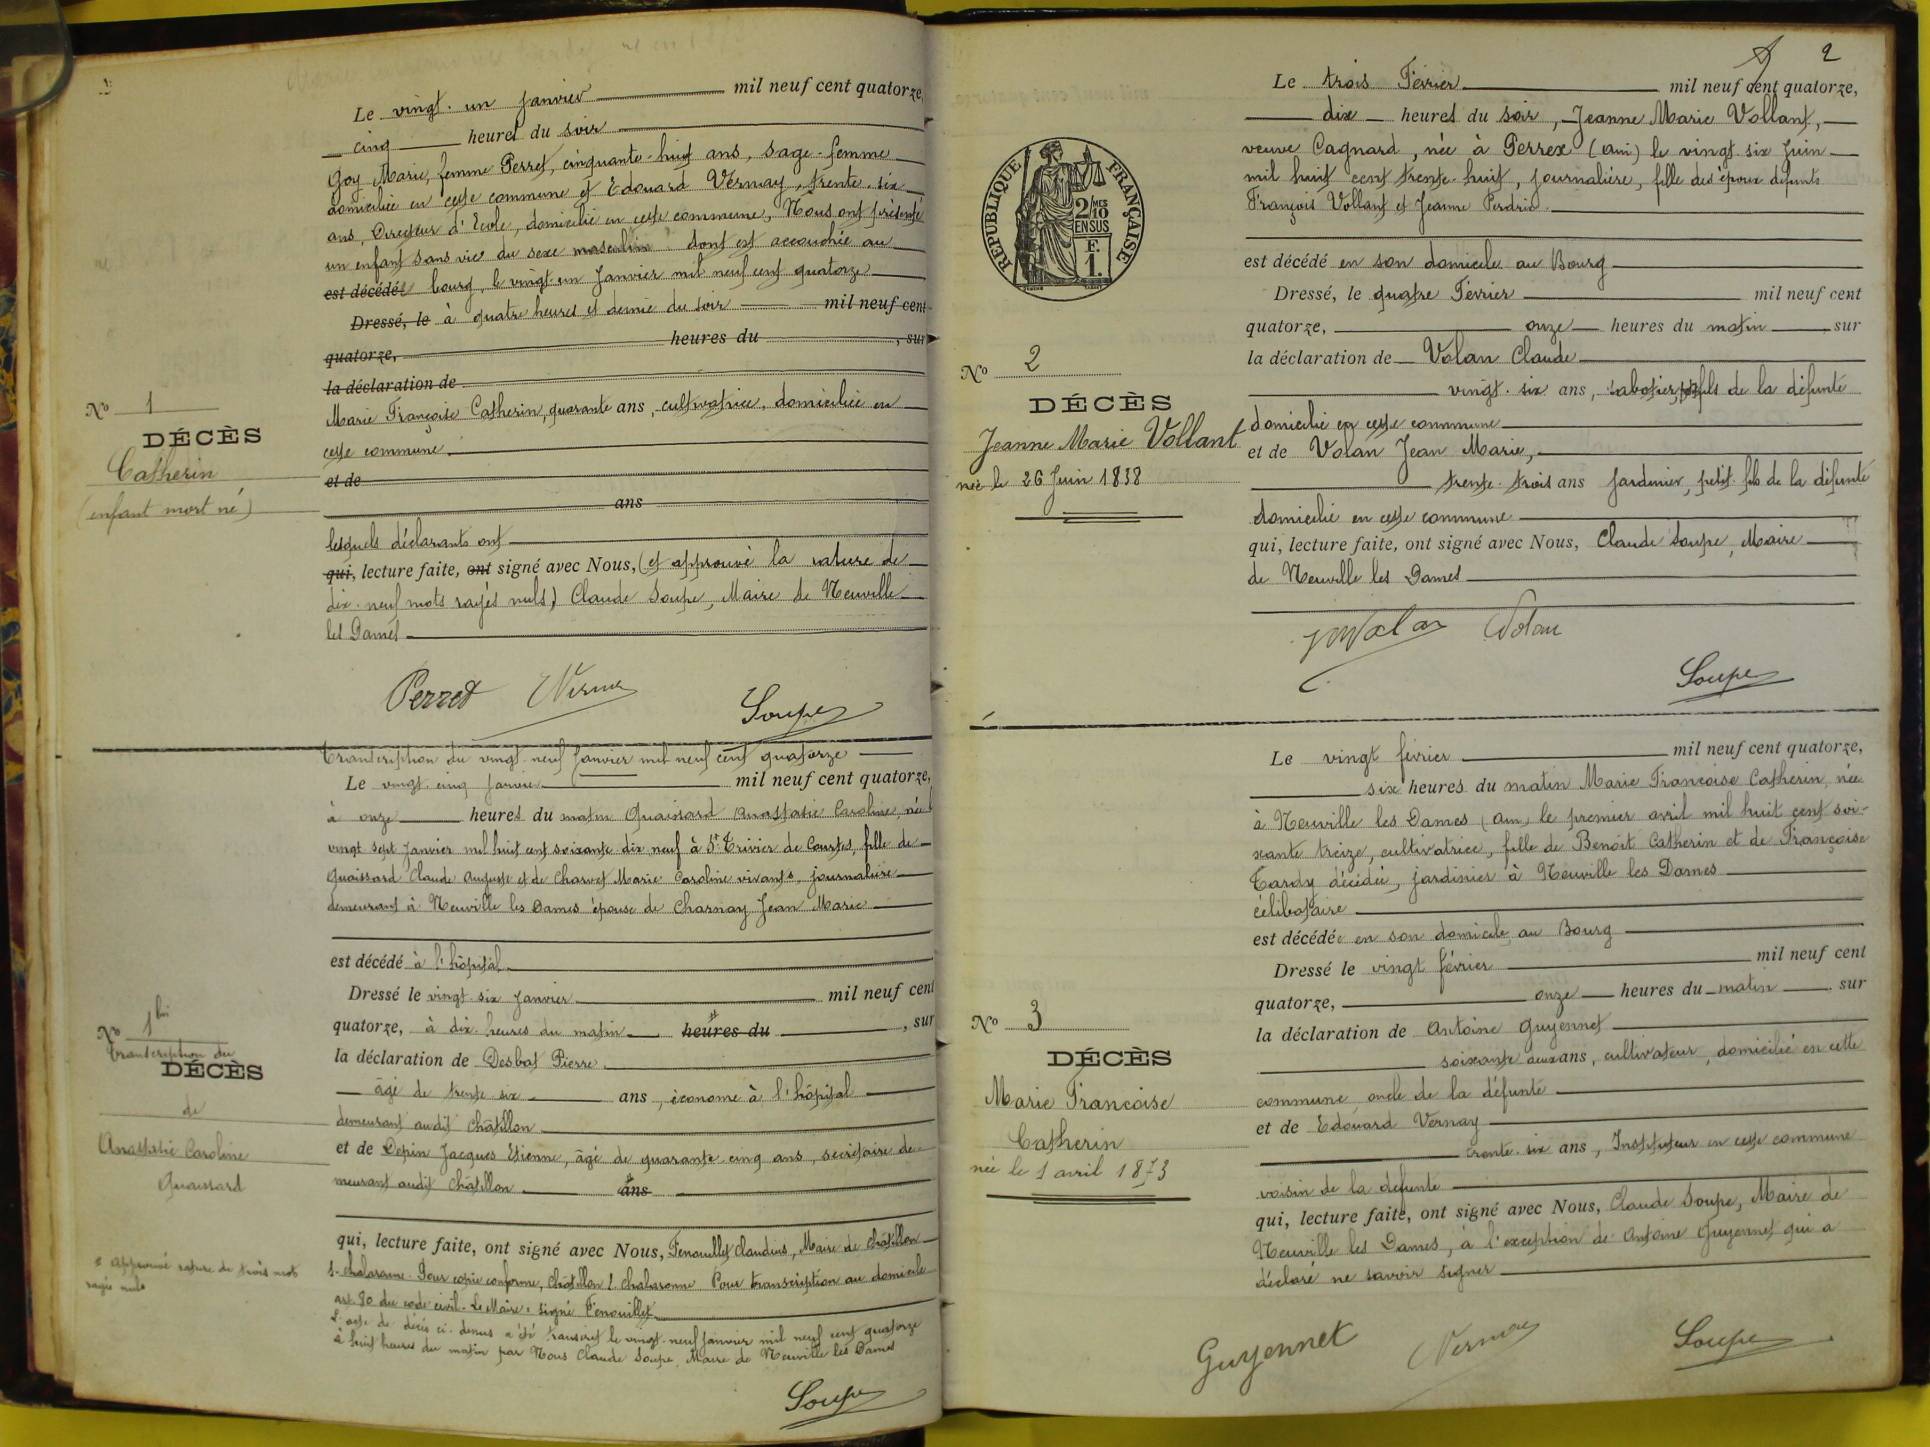 Le vingt-un janvier mil neuf cent quatorze,
cinq heures du soir
Goy Marie, femme Perret, cinquante-huit ans, sage-femme
domiciliée en cette commune et Edouard Vernay, trente-six
ans, Directeur d'Ecole, domicilié en cette commune, Nous ont présenté
un enfant sans vie du sexe masculin dont est accouchée au
est décédé bourg, le vingt-un janvier mil neuf cent quatorze
Dressé, le à quatre heures et demie du soir mil neuf cent
quatorze, heures du , sur
la déclaration de
Nº 1
Marie Françoise Catherin, quarante ans, cultivatrice, domiciliée en
DÉCÈS
cette commune.
Catherin
et de
(enfant mort né)
ans
lesquels déclarants ont
qui, lecture faite, ont signé avec Nous, (et approuvé la rature de
dix-neuf mots rayés nuls) Claude Soupe, Maire de Neuville
les Dames
Perret Vernay Soupe
transcription du vingt-neuf janvier mil neuf cent quatorze
Le vingt-cinq janvier mil neuf cent quatorze,
à onze heures du matin Quaissard Anastasie Caroline, née
vingt sept janvier mil huit cent soixante-dix-neuf à St Trivier de Courtes, fille de
Quaissard Claude Auguste et de Charvet Marie Caroline vivants, journalière
demeurant à Neuville les Dames épouse de Charnay Jean Marie
est décédé à l'hôpital
Dressé le vingt-six janvier mil neuf cent
Nº 1 bis
quatorze, à dix heures du matin heures du , sur
transcription du
DÉCÈS
la déclaration de Desbat Pierre
de
âgé de trente-six ans, économe à l'hôpital
demeurant audit Châtillon
Anastasie Caroline
et de Depin Jacques Etienne, âgé de quarante-cinq ans, secrétaire de-
Quaissard
meurant audit Châtillon ans
qui, lecture faite, ont signé avec Nous, Fenouillet Claudius, Maire de Châtillon
* Approuvé rature de trois mots
rayés nuls
s-Chalaronne. Pour copie conforme, Châtillon s. Chalaronne Pour transcription au domicile
art. 80 du code civil. Le Maire: signé Fenouillet
L'acte de décès ci-dessus a été transcrit le vingt-neuf janvier mil neuf cent quatorze
à huit heures du matin par Nous Claude Soupe, Maire de Neuville les Dames
Soupe
2
Le trois Février mil neuf cent quatorze,
dix heures du soir, Jeanne Marie Vollant,
veuve Cagnard, née à Perrex (Ain) le vingt-six juin
mil huit cent trente-huit, journalière, fille des époux défunts
François Vollant et Jeanne Perdrix
RÉPUBLIQUE FRANÇAISE
2 MES
10
EN SUS
F.
1.
est décédé en son domicile au Bourg
Dressé, le quatre Février mil neuf cent
quatorze, onze heures du matin sur
Nº 2
la déclaration de Volan Claude
DÉCÈS
vingt-six ans, sabotier, fils de la défunte
Jeanne Marie Vollant
domicilié en cette commune
et de Volan Jean Marie,
née le 26 Juin 1838
trente-trois ans jardinier, petit-fils de la défunte
domicilié en cette commune
qui, lecture faite, ont signé avec Nous, Claude Soupe, Maire
de Neuville les Dames
JM Volan Volan
Soupe
Le vingt février mil neuf cent quatorze,
six heures du matin Marie Francoise Catherin, née
à Neuville les Dames (Ain) le premier avril mil huit cent soi-
xante treize, cultivatrice, fille de Benoit Catherin et de Françoise
Tardy décédée, jardinier à Neuville les Dames
célibataire
est décédée en son domicile au Bourg
Dressé le vingt février mil neuf cent
quatorze, onze heures du matin sur
Nº 3
la déclaration de Antoine Guyennet
DÉCÈS
soixante deux ans, cultivateur, domicilié en cette
Marie Francoise
commune, oncle de la défunte
Catherin
et de Edouard Vernay
née le 1 avril 1873
trente-six ans, Instituteur en cette commune
voisin de la défunte
qui, lecture faite, ont signé avec Nous, Claude Soupe, Maire de
Neuville les Dames, à l'exception de Antoine Guyennet qui a
déclaré ne savoir signer
Guyennet Vernay Soupe